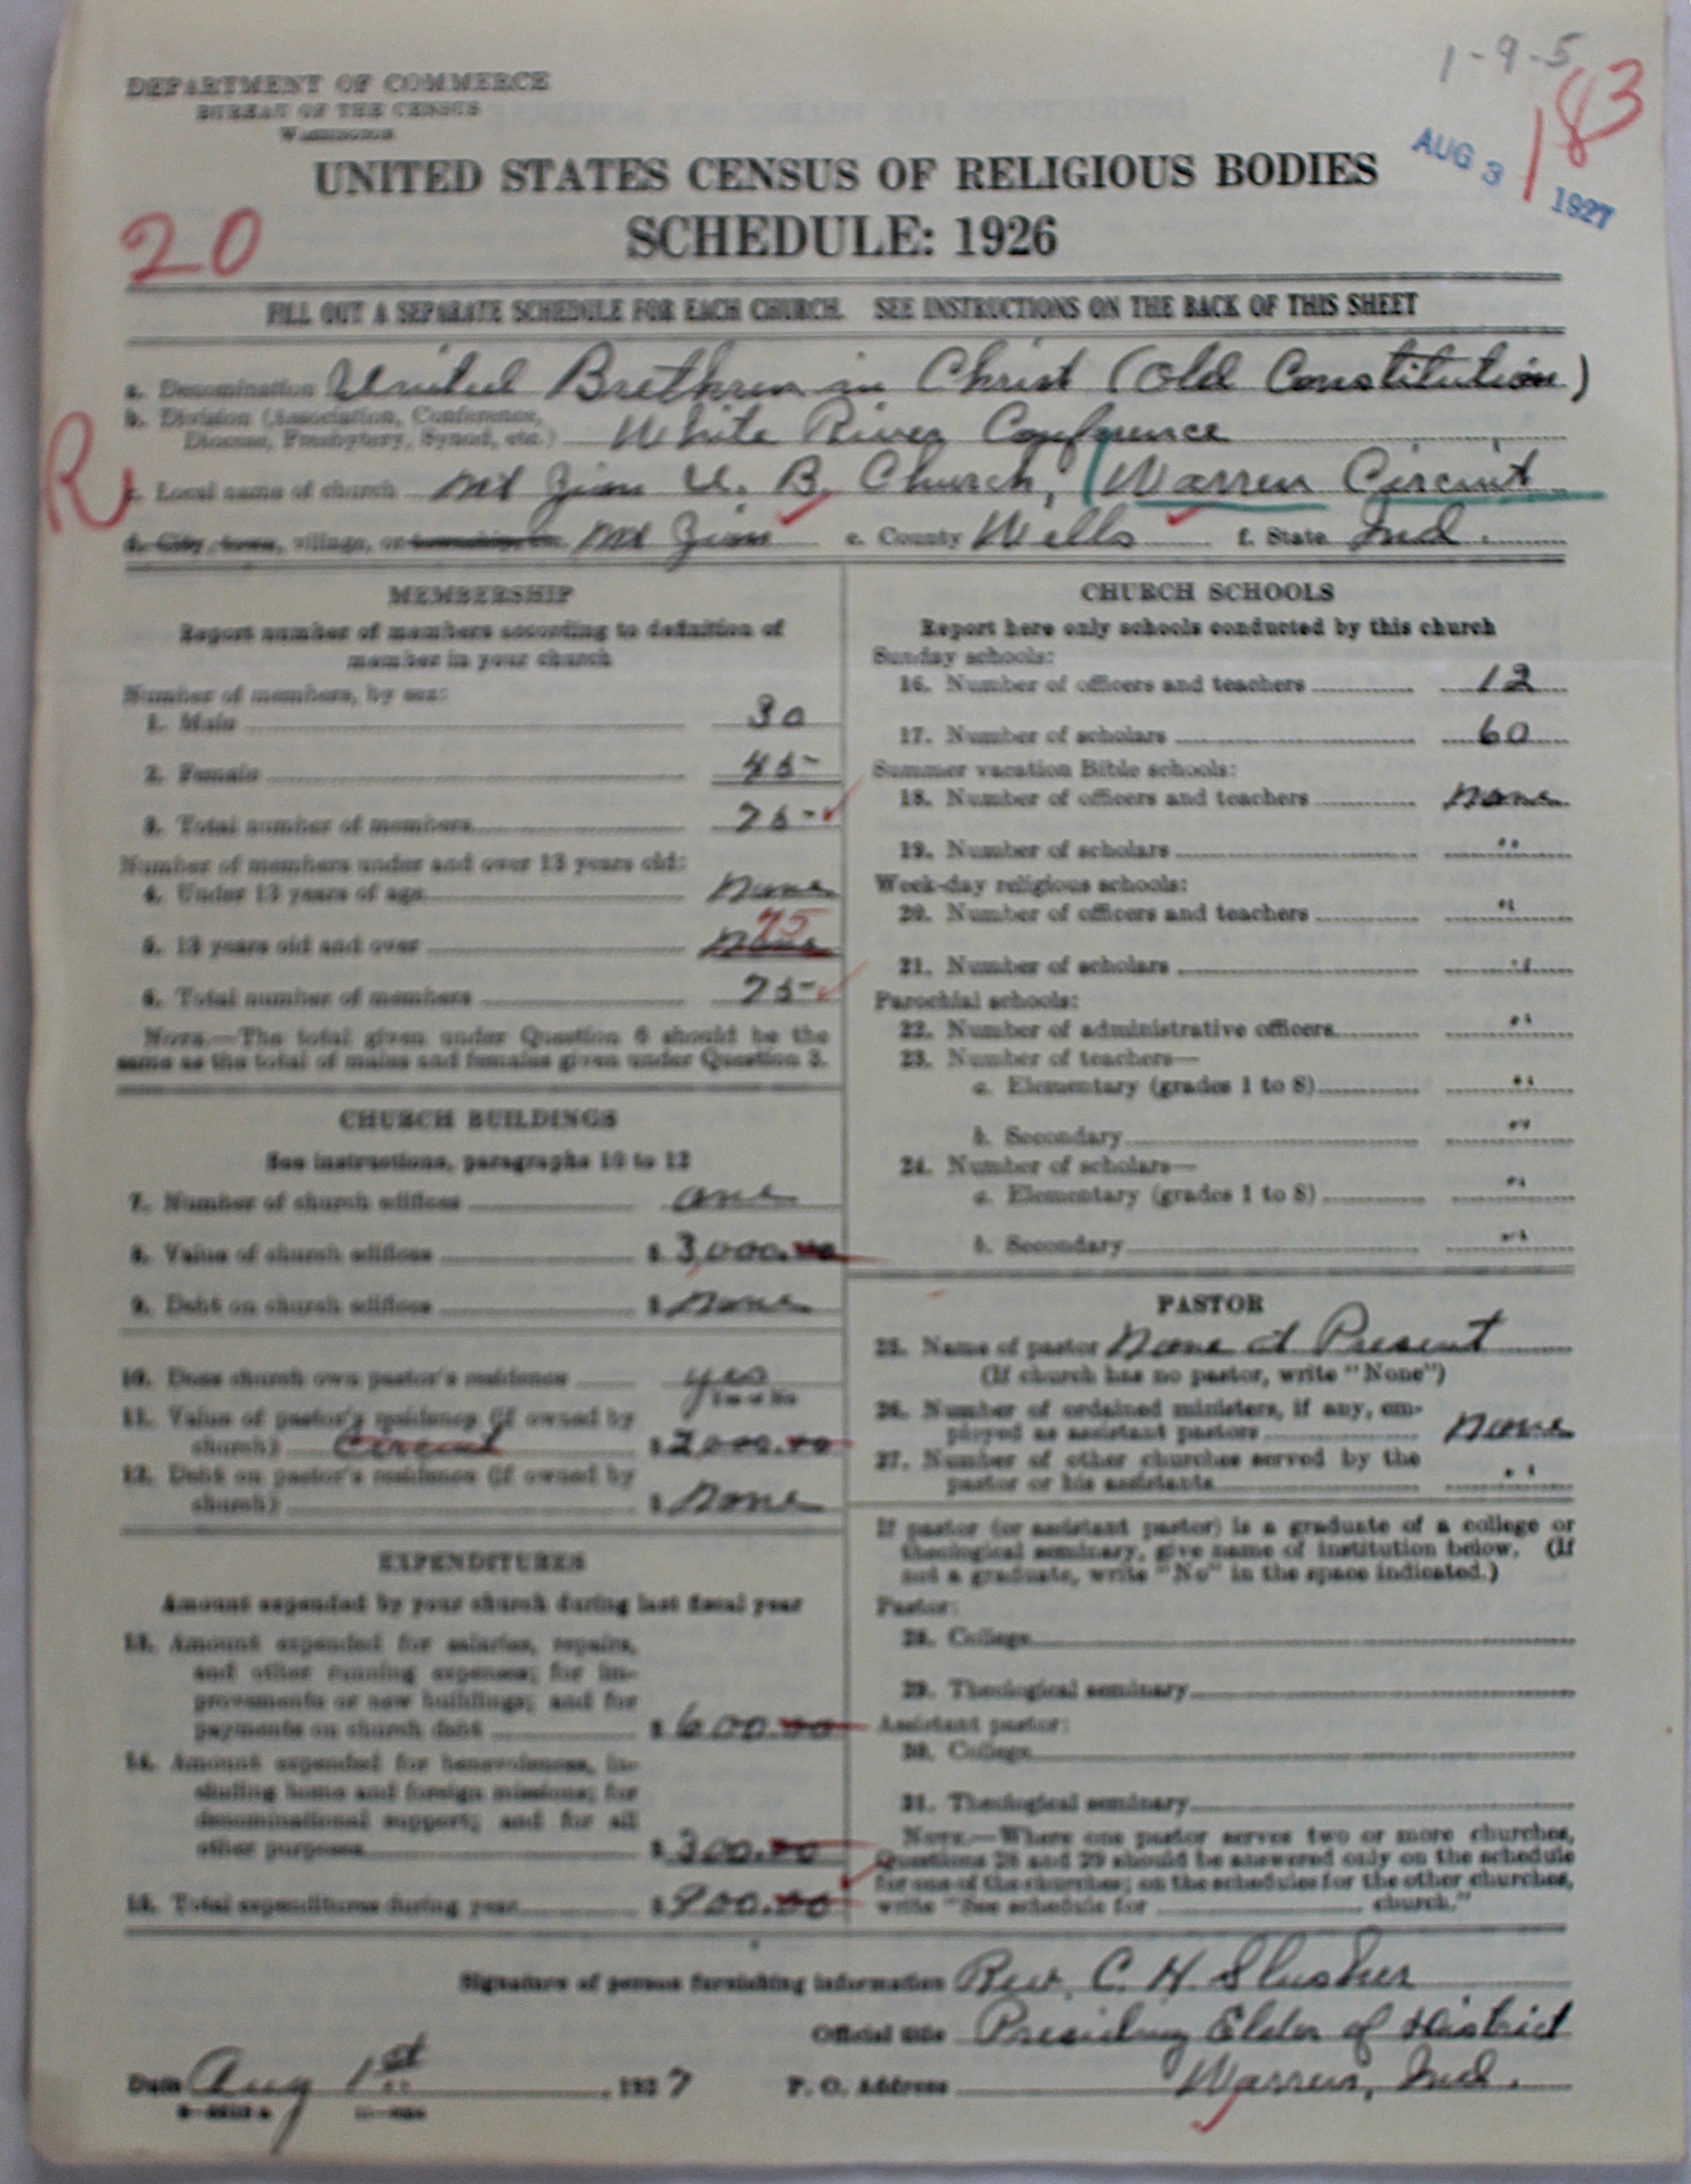 1-9-5
183
AUG 3 1927
DEPARTMENT OF COMMERCE
BUREAU OF THE CENSUS
WASHINGTON
UNITED STATES CENSUS OF RELIGIOUS BODIES
SCHEDULE: 1926
20
FILL OUT A SEPARATE SCHEDULE FOR EACH CHURCH. SEE INSTRUCTIONS ON THE BACK OF THIS SHEET
a. Denomination United Brethren in Christ (Old Constitution)
b. Division (Association, Conference,
Diocese, Presbytery, Synod, etc.) White River Conference
R
c. Local name of church Mt Zion U. B. Church, (Warren Circuit
d. City, town, village, or township, etc. Mt Zion e. County Wells f. State Ind.
MEMBERSHIP
Report number of members according to definition of
member in your church
Number of members, by sex:
1. Male 30
2. Female 45
3. Total number of members 75
Number of members under and over 13 years old:
4. Under 13 years of age None
75
5. 13 years old and over None
6. Total number of members 75
NOTE.—The total given under Question 6 should be the
same as the total of males and females given under Question 3.
CHURCH BUILDINGS
See instructions, paragraphs 10 to 12
7. Number of church edifices one
8. Value of church edifices $ 3,000.00
9. Debt on church edifices $ None
10. Does church own pastor's residence yes
Yes or No
11. Value of pastor's residence (if owned by
church) Circuit $ 2,000.00
12. Debt on pastor's residence (if owned by
church) $ None
EXPENDITURES
Amount expended by your church during last fiscal year
13. Amount expended for salaries, repairs,
and other running expenses; for im-
provements or new buildings; and for
payments on church debt $ 600.00
14. Amount expended for benevolences, in-
cluding home and foreign missions; for
denominational support; and for all
other purposes $ 300.00
15. Total expenditures during year $ 900.00
CHURCH SCHOOLS
Report here only schools conducted by this church
Sunday schools:
16. Number of officers and teachers 12
17. Number of scholars 60
Summer vacation Bible schools:
18. Number of officers and teachers None
19. Number of scholars "
Week-day religious schools:
20. Number of officers and teachers "
21. Number of scholars "
Parochial schools:
22. Number of administrative officers "
23. Number of teachers—
a. Elementary (grades 1 to 8) "
b. Secondary "
24. Number of scholars—
a. Elementary (grades 1 to 8) "
b. Secondary "
PASTOR
25. Name of pastor None at Present
(If church has no pastor, write "None")
26. Number of ordained ministers, if any, em-
ployed as assistant pastors None
27. Number of other churches served by the
pastor or his assistants "
If pastor (or assistant pastor) is a graduate of a college or
theological seminary, give name of institution below. (If
not a graduate, write "No" in the space indicated.)
Pastor:
28. College
29. Theological seminary
Assistant pastor:
30. College
31. Theological seminary
NOTE.—Where one pastor serves two or more churches,
Questions 28 and 29 should be answered only on the schedule
for one of the churches; on the schedules for the other churches,
write "See schedule for church."
Signature of person furnishing information Rev. C. H. Slusher
Official title Presiding Elder of District
Date Aug 1st, 1927 P. O. Address Warren, Ind.